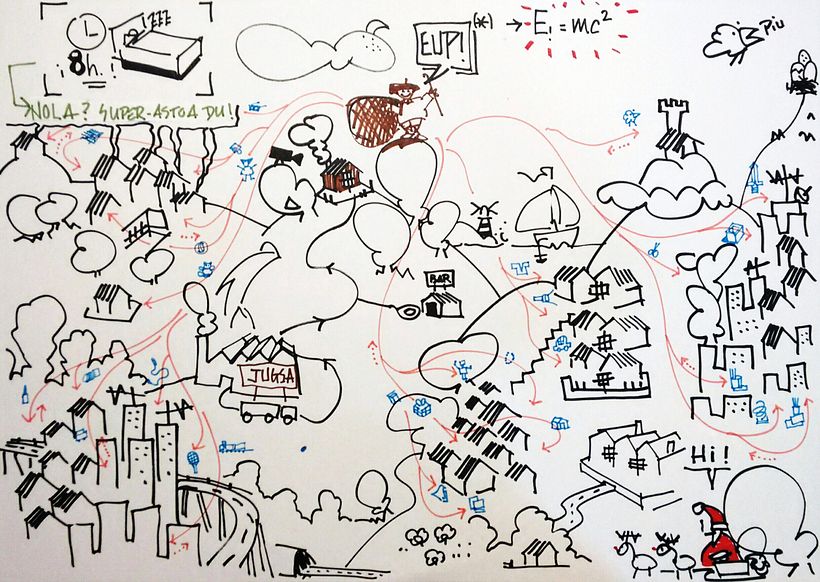 ZZZ
¡8h.!
NOLA? SUPER-ASTOA DU!
EUP!
(*)
→ E! = mc²
Piu
BAR
JUGSA
Hi!